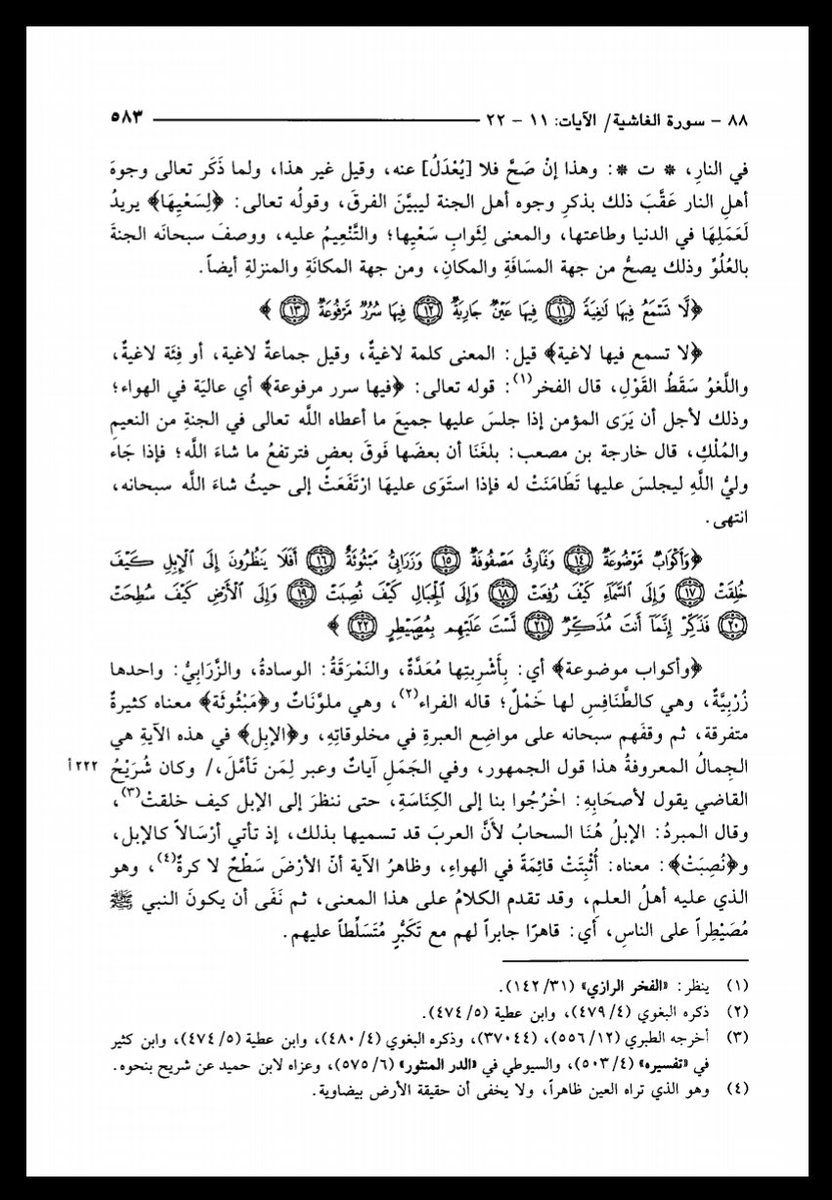 ٨٨ - سورة الغاشية/ الآيات: ١١ - ٢٢ ٥٨٣
في النارِ، * ت *: وهذا إنْ صَحَّ فلا [يُعْدَلُ] عنه، وقيل غير هذا، ولما ذَكَر تعالى وجوهَ
أهلِ النار عَقَّبَ ذلك بذكرِ وجوه أهل الجنة ليبيَّنَ الفرقَ، وقولُه تعالى: ﴿لِسَعْيِهَا﴾ يريدُ
لَعَمَلِهَا في الدنيا وطاعتها، والمعنى لِثَوابِ سَعْيِها؛ والتَّنْعِيمُ عليه، ووصفَ سبحانَه الجنةَ
بالعُلُوِّ وذلك يصحُّ من جهة المسَافَةِ والمكانِ، ومن جهة المكانَةِ والمنزلةِ أيضاً.
﴿لَّا تَسْمَعُ فِيهَا لَغِيَةً ﴿١١﴾ فِيهَا عَيْنٌ جَارِيَةٌ ﴿١٢﴾ فِيهَا سُرُرٌ مَّرْفُوعَةٌ ﴿١٣﴾ ﴾
﴿لا تسمع فيها لاغية﴾ قيل: المعنى كلمة لاغيةٌ، وقيل جماعةٌ لاغية، أو فِئَة لاغيةٌ،
واللَّغوُ سَقَطُ القَوْلِ، قال الفخر(١): قوله تعالى: ﴿فيها سرر مرفوعة﴾ أي عاليَة في الهواء؛
وذلك لأجل أن يَرَى المؤمن إذا جلسَ عليها جميعَ ما أعطاه اللَّه تعالى في الجنةِ من النعيمِ
والمُلْكِ، قال خارجة بن مصعب: بلغَنَا أن بعضَها فَوقَ بعضٍ فترتفعُ ما شاءَ اللَّه؛ فإذا جَاءَ
وليُّ اللَّهِ ليجلسَ عليها تَطَامَنَتْ له فإذا استَوَى عليهَا ارْتَفَعَتْ إلى حيثُ شاءَ اللَّه سبحانه،
انتهى.
﴿وَأَكْوَابٌ مَّوْضُوعَةٌ ﴿١٤﴾ وَنَمَارِقُ مَصْفُوفَةٌ ﴿١٥﴾ وَزَرَابِيُّ مَبْثُوثَةٌ ﴿١٦﴾ أَفَلَا يَنظُرُونَ إِلَى الْإِبِلِ كَيْفَ
خُلِقَتْ ﴿١٧﴾ وَإِلَى السَّمَاءِ كَيْفَ رُفِعَتْ ﴿١٨﴾ وَإِلَى الْجِبَالِ كَيْفَ نُصِبَتْ ﴿١٩﴾ وَإِلَى الْأَرْضِ كَيْفَ سُطِحَتْ
﴿٢٠﴾ فَذَكِّرْ إِنَّمَا أَنتَ مُذَكِّرٌ ﴿٢١﴾ لَّسْتَ عَلَيْهِم بِمُصَيْطِرٍ ﴿٢٢﴾ ﴾
﴿وأكواب موضوعة﴾ أي: بِأَشْرِبتِها مُعَدَّةٌ، والنمْرَقَةُ: الوسادةُ، والزَّرَابِيُّ: واحدها
زُرْبِيَّةٌ، وهي كالطَّنَافِسِ لها خَمْلٌ؛ قاله الفراء(٢)، وهي ملوَّنَاتٌ و﴿مَبْثُوثَة﴾ معناه كثيرةٌ
متفرقة، ثم وقفَهم سبحانه على مواضِع العبرةِ في مخلوقاتِهِ، و﴿الإبل﴾ في هذه الآيةِ هي
الجِمالُ المعروفةُ هذا قول الجمهور، وفي الجَمَلِ آياتٌ وعبر لِمَن تَأَمَّلَ،/ وكان شُرَيْحُ ٢٢٢ أ
القاضي يقول لأصحَابِهِ: اخْرُجُوا بنا إلى الكِنَاسَةِ، حتى ننظرَ إلى الإبل كيف خلقتْ(٣)،
وقال المبردُ: الإبلُ هُنَا السحابُ لأَنَّ العربَ قد تسميها بذلك، إذ تأتي أرْسَالاً كالإبل،
و﴿نُصِبَتْ﴾: معناه: أُثْبِتَتْ قائِمَةً في الهواءِ، وظاهرُ الآية أنّ الأرْضَ سَطْحٌ لا كرةٌ(٤)، وهو
الذي عليه أهلُ العلمِ، وقد تقدم الكلامُ على هذا المعنى، ثم نَفَى أن يكونَ النبي ﷺ
مُصَيْطِراً على الناسِ، أي: قاهرًا جابراً لهم مع تَكَبُّرٍ مُتَسَلِّطاً عليهم.
(١) ينظر: «الفخر الرازي» (٣١/ ١٤٢).
(٢) ذكره البغوي (٤/ ٤٧٩)، وابن عطية (٥/ ٤٧٤).
(٣) أخرجه الطبري (١٢/ ٥٥٦)، (٣٧٠٤٤)، وذكره البغوي (٤/ ٤٨٠)، وابن عطية (٥/ ٤٧٤)، وابن كثير
في «تفسيره» (٤/ ٥٠٣)، والسيوطي في «الدر المنثور» (٦/ ٥٧٥)، وعزاه لابن حميد عن شريح بنحوه.
(٤) وهو الذي تراه العين ظاهراً، ولا يخفى أن حقيقة الأرض بيضاوية.